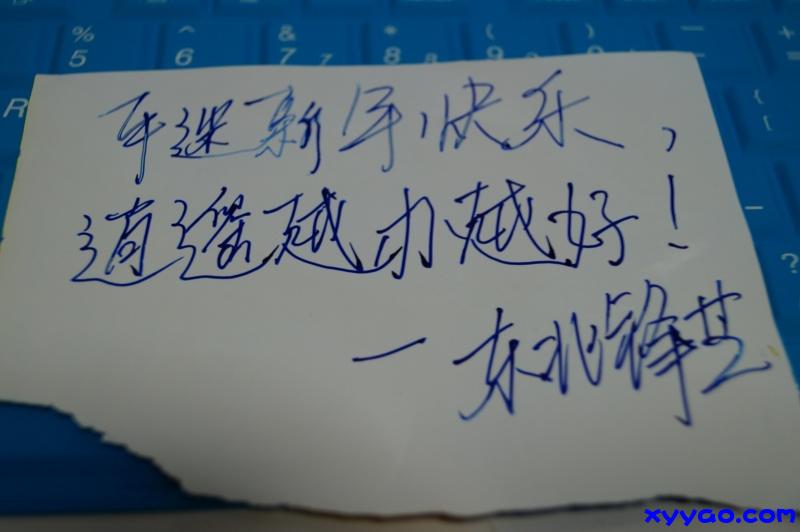 新年快乐,
逍遥越办越好!
一东北锋芒
xyygo.com
% 5
^ 6
& 7 7
* 8 8
( 9
R